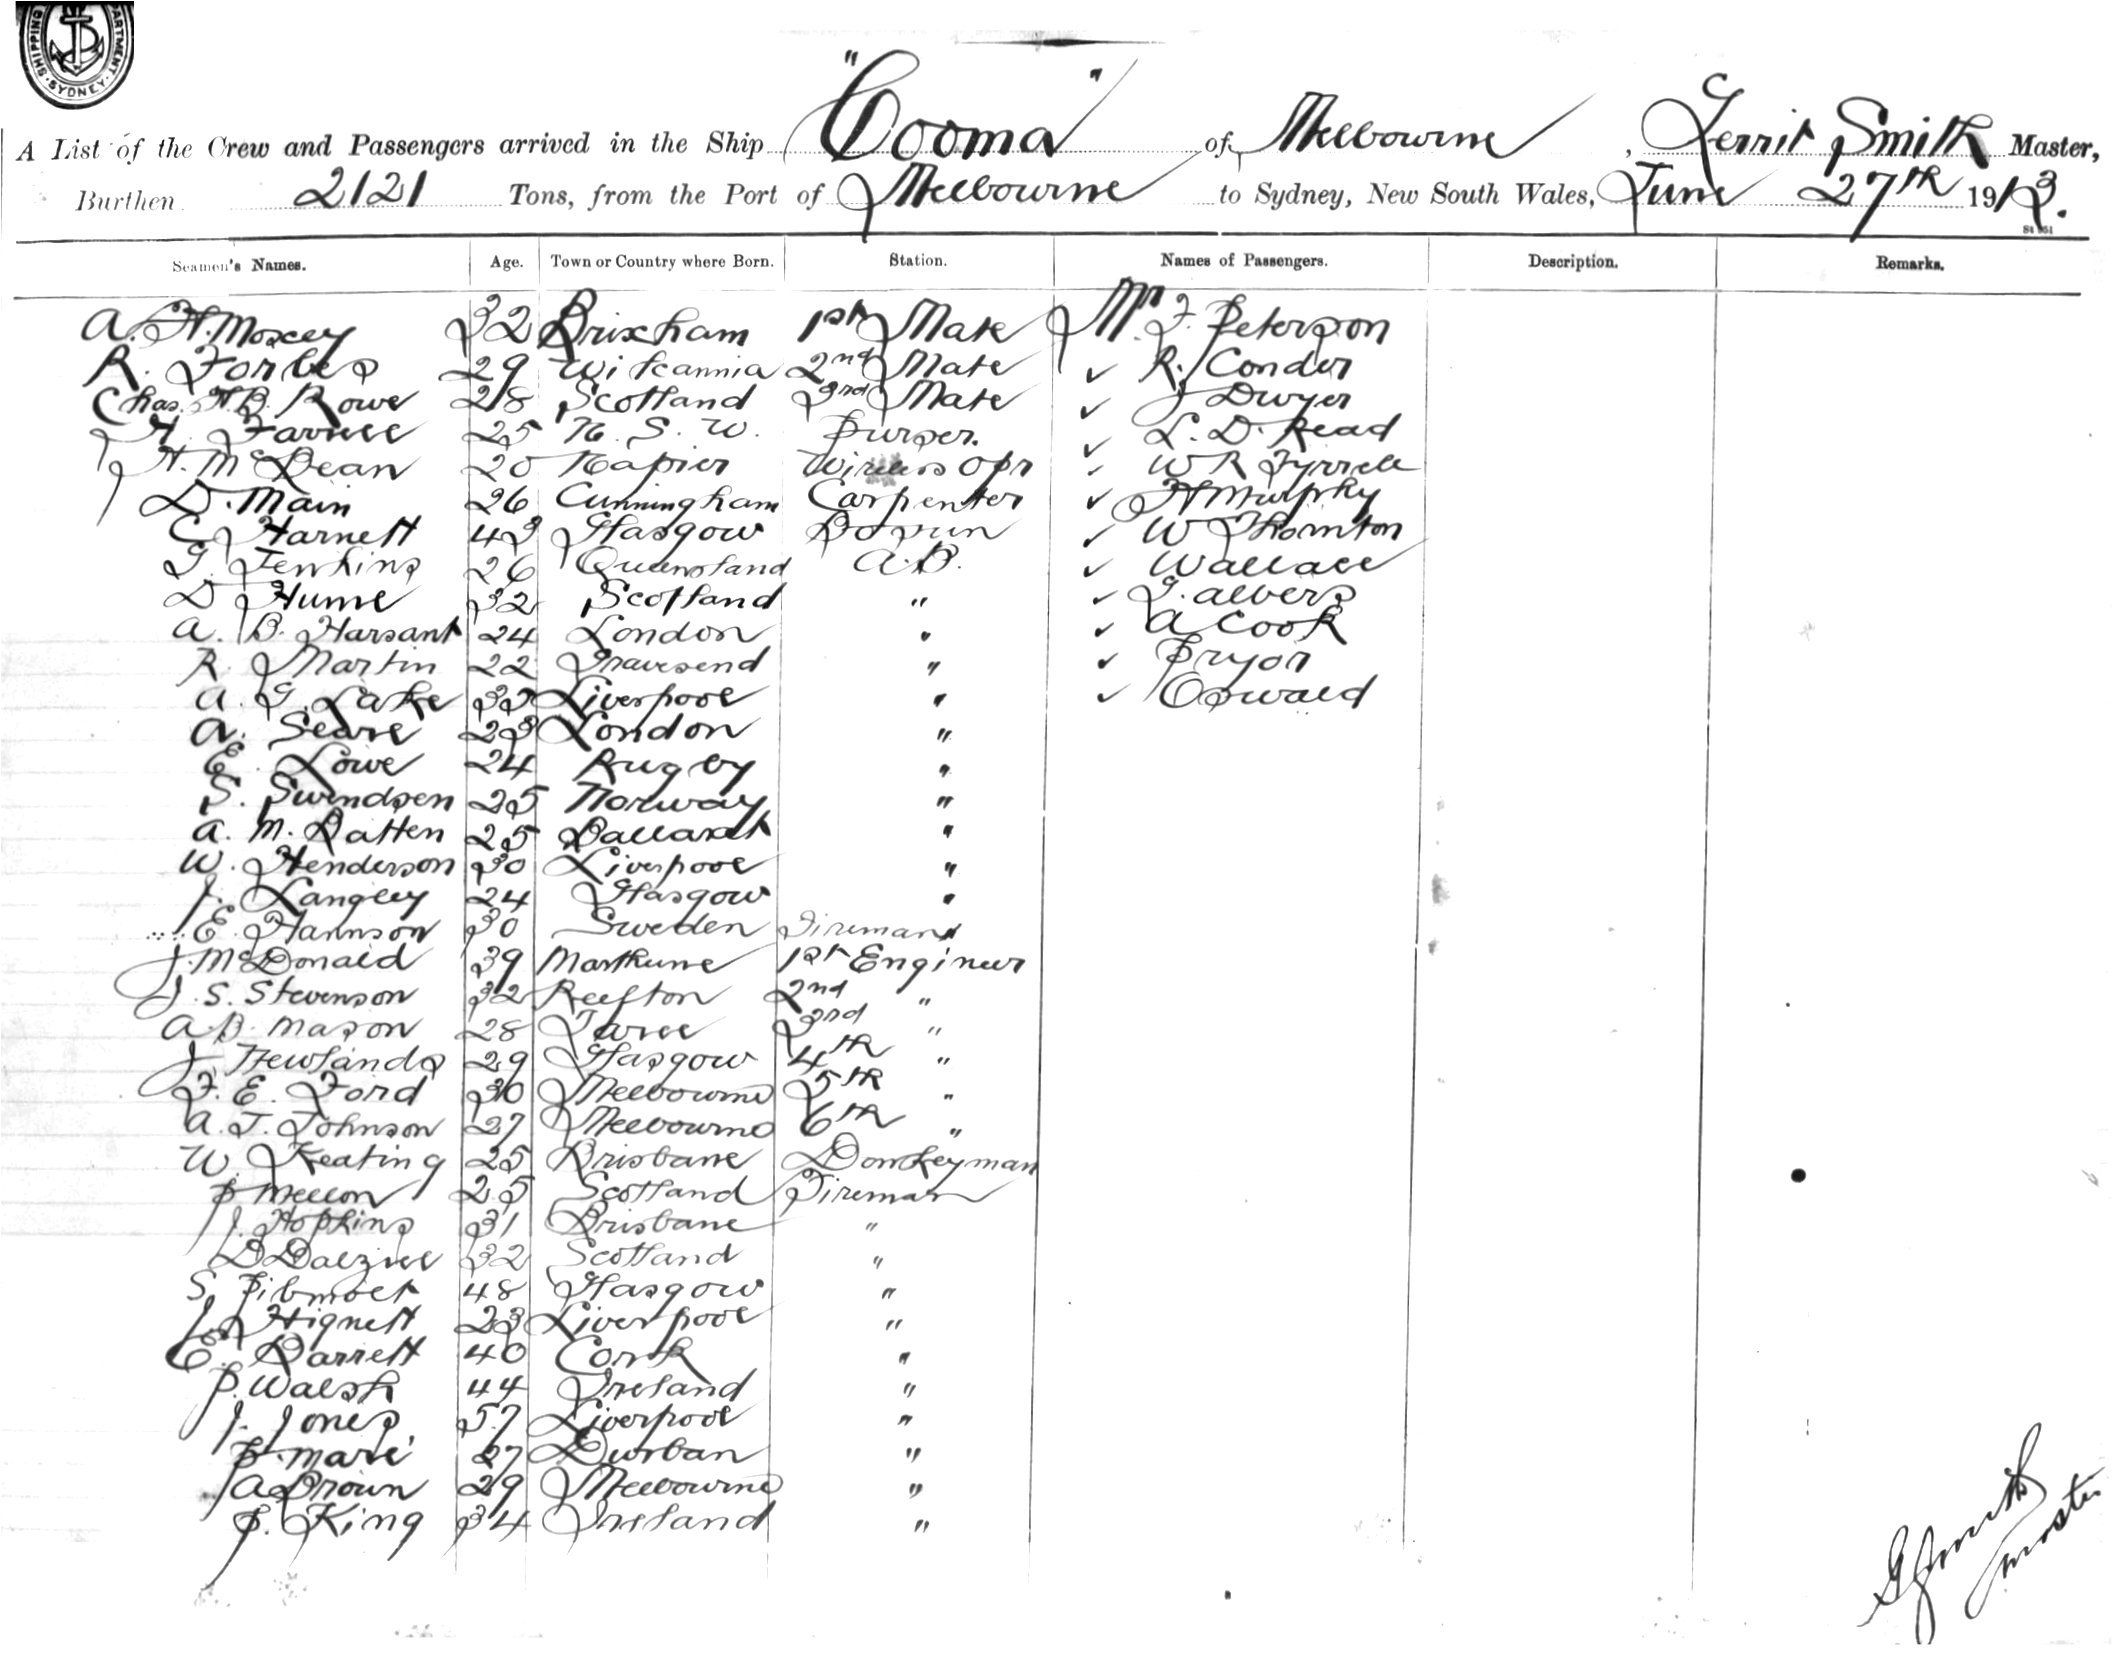 SHIPPING DEPARTMENT SYDNEY
A List of the Crew and Passengers arrived in the Ship "Cooma" of Melbourne, Gerrit Smith Master,
Burthen 2121 Tons, from the Port of Melbourne to Sydney, New South Wales, June 27th 1913.
Seamen's Names. Age. Town or Country where Born. Station. Names of Passengers. Description. Remarks.
A. H. Moxey 32 Brixham 1st Mate Mr F. Peterson
R. Forbes 29 Wilcannia 2nd Mate ✓ R. Conder
Chas. H.B. Rowe 28 Scotland 3rd Mate ✓ J Dwyer
H. Farrell 25 N. S. W. Purser. ✓ L. D. Read
H. McBean 20 Napier Wireless Opr ✓ W R Tyrrell
D. Main 26 Cunningham Carpenter ✓ H Murphy
C Harnett 43 Glasgow Bosun ✓ W Thornton
G. Jenkins 26 Queensland A.B. ✓ Wallace
D Hume 32 Scotland " ✓ G. Albers
A. B. Harsant 24 London " ✓ A Cook
R. Martin 22 Gravesend " ✓ Pryor
A. G. Lake 33 Liverpool " ✓ Oswald
A. Seare 23 London "
E. Lowe 24 Rugby "
S. Swendsen 25 Norway "
A. M. Batten 25 Ballarat "
W. Henderson 30 Liverpool "
J. Langley 24 Glasgow "
E. Hannson 30 Sweden Fireman
J. McDonald 39 1st Engineer
J. S. Stevenson 32 Reefton 2nd "
A.B. Mason 28 Taree 3rd "
J. Newlands 29 Glasgow 4th "
F. E. Ford 30 Melbourne 5th "
A. J. Johnson 27 Melbourne 6th "
W. Keating 25 Brisbane Donkeyman
P Mellon 25 Scotland Fireman
J. Hopkins 31 Brisbane "
D Dalziel 32 Scotland "
S. 48 Glasgow "
J. Hignett 23 Liverpool "
E. Barrett 40 Cork "
P. Walsh 44 Ireland "
J. Jones 57 Liverpool "
P. Mare 27 Durban "
A Brown 29 Melbourne "
P. King 34 Ireland "
G Smith
Master